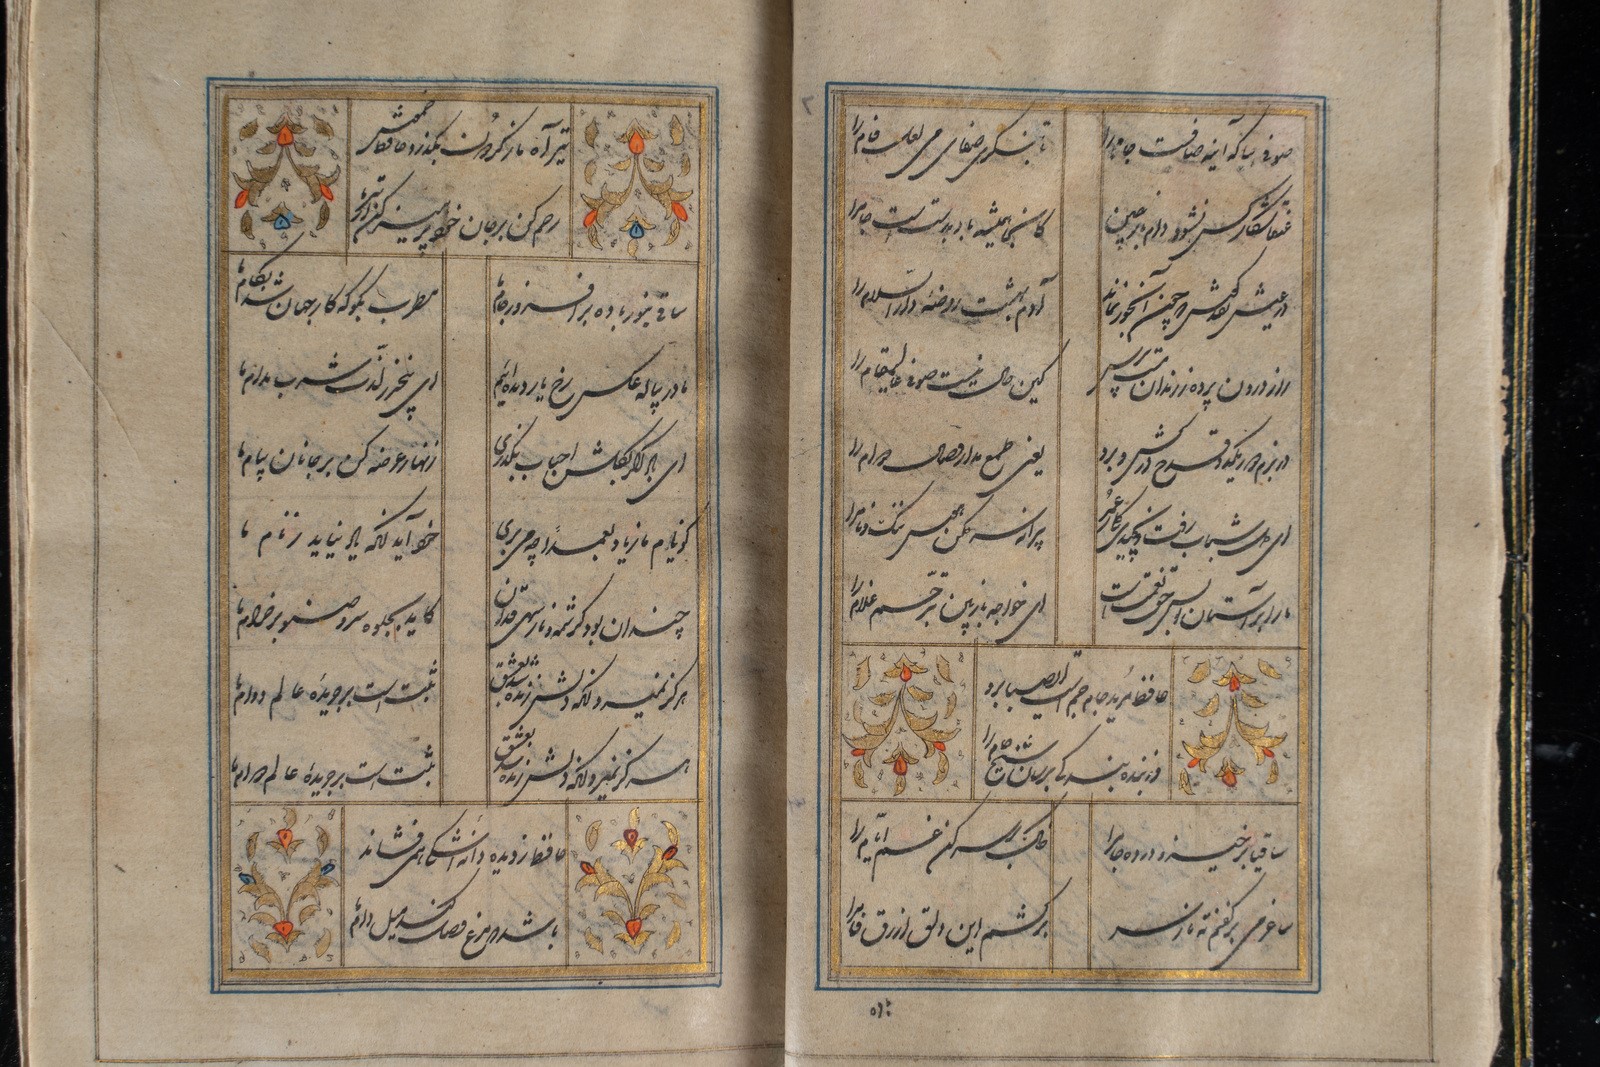 صوفی بیا که آینه صافیست جام را
تا بنگری صفای می لعل فام را
عنقا شکار کس نشود دام باز چین
کانجا همیشه باد بدست است دام را
در عیش نقد کوش که چون آبخور نماند
آدم بهشت روضه دارالسلام را
راز درون پرده ز رندان مست پرس
کین حال نیست صوفی عالیمقام را
در بزم دور یکدو قدح درکش و برو
یعنی طمع مدار وصال دوام را
ای دل شباب رفت و نچیدی گلی ز عمر
پیرانه سر مکن هنری ننگ و نام را
ما را بر آستان تو بس حق خدمت است
ای خواجه باز بین بترحم غلام را
حافظ مرید جام جم است ای صبا برو
وز بنده بندگی برسان شیخ جام را
ساقیا برخیز و در ده جام را
خاک بر سر کن غم ایام را
ساغر می بر کفم نه تا ز سر
برکشم این دلق ازرق فام را
تیر آه ما ز گردون بگذرد حافظ خموش
رحم کن بر جان خود پرهیز کن از تیر ما
ساقی بنور باده برافروز جام ما
مطرب بگو که کار جهان شد بکام ما
ما در پیاله عکس رخ یار دیده‌ایم
ای بیخبر ز لذت شرب مدام ما
ای باد اگر بگلشن احباب بگذری
زنهار عرضه کن بر جانان پیام ما
گو نام ما ز یاد بعمدا چه می بری
خود آید آنکه یاد نیاید ز نام ما
چندان بود کرشمه و ناز سهی قدان
کاید بجلوه سرو صنوبر خرام ما
هرگز نمیرد آنکه دلش زنده شد بعشق
ثبت است بر جریدهٔ عالم دوام ما
هرگز نمیرد آنکه دلش زنده شد بعشق
ثبت است بر جریدهٔ عالم دوام ما
حافظ ز دیده دانه اشکی همی فشاند
باشد که مرغ وصل کند میل دام ما